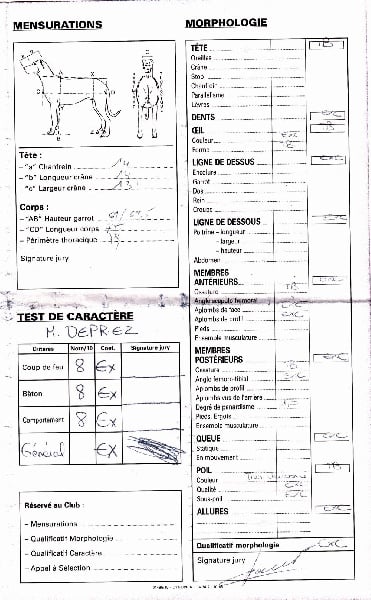 MENSURATIONS
Tête :
– "a" Chanfrein 14
– "b" Longueur crâne 14
– "c" Largeur crâne 13
Corps :
– "AB" Hauteur garrot
– "CD" Longueur corps
– Périmètre thoracique
Signature jury
TEST DE CARACTÈRE
M. DEPREZ
Critères Note/10 Cot. Signature jury
Coup de feu 8 Ex
Bâton 8 Ex
Comportement 8 Ex
Général Ex
Réservé au Club :
– Mensurations
– Qualificatif Morphologie
– Qualificatif Caractère
– Appel à Sélection
MORPHOLOGIE
TÊTE TB
Oreilles
Crâne
Stop
Chanfrein
Parallélisme
Lèvres
DENTS exc
ŒIL TB
Couleur exc
Forme TB
LIGNE DE DESSUS exc
Encolure
Garrot
Dos
Rein
Croupe
LIGNE DE DESSOUS exc
Poitrine – longueur
– largeur
– hauteur
Abdomen
MEMBRES
ANTÉRIEURS exc
Ossature TB
Angle scapulo huméral exc
Aplombs de face exc
Aplombs de profil exc
Pieds
Ensemble musculature
MEMBRES
POSTÉRIEURS exc
Ossature TB
Angle fémoro-tibial exc
Aplombs de profil
Aplombs vus de l'arrière
Degré de panardisme
Pieds, Ergots
Ensemble musculature
QUEUE exc
Statique
En mouvement
POIL TB
Couleur
Qualité exc
Sous-poil exc
ALLURES exc
Qualificatif morphologie exc
Signature jury